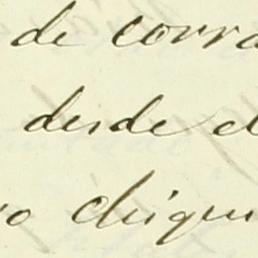 de corra
desde el
o chiqui